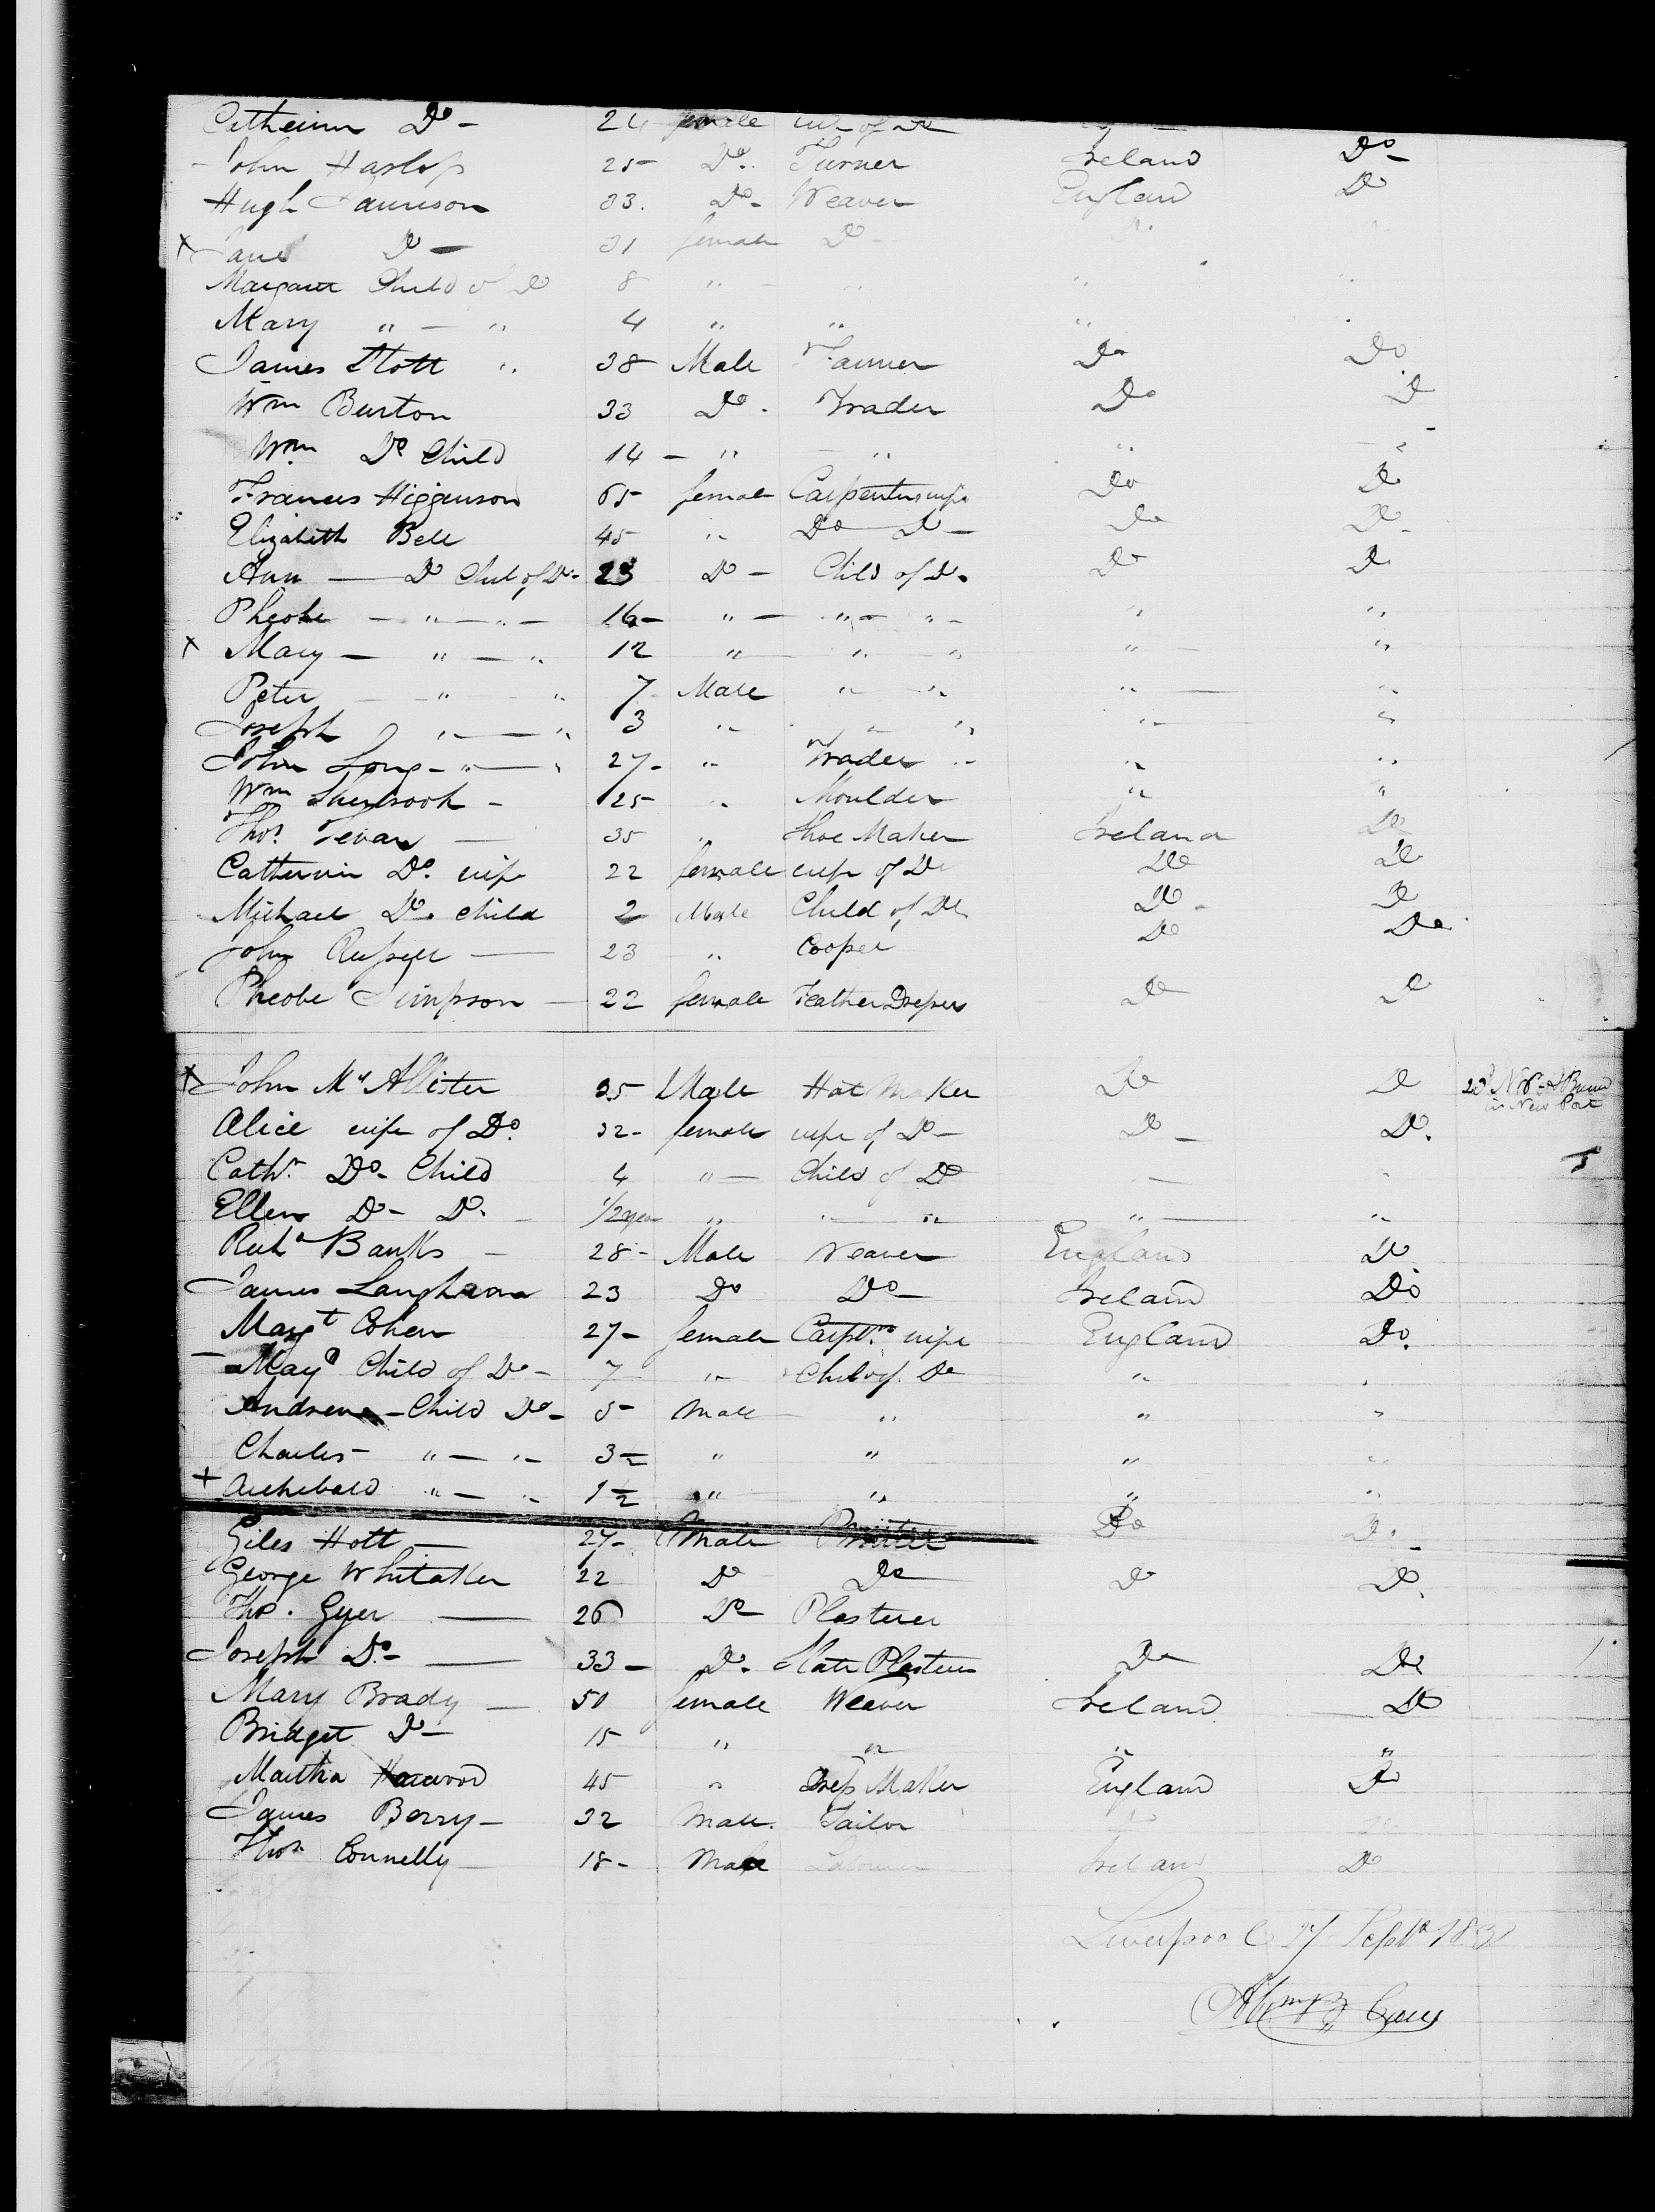 Do - 24 female wife of Do
John Haslop 25 Do. Turner Ireland Do -
Hugh Jamieson 33. Do - Weaver England Do
x Jane Do - 31 female Do - Do
Margaret Child of Do 8 " - "  "
Mary " - " 4 " " "
James Stott " 38 Male Farmer Do Do
Wm Burton 33 Do . Trader Do D
Wm Do Child 14 - " " " - "
Frances Higgenson 65 female Carpenters wife Do Do
Elizabeth Bell 45 " Do Do - Do Do -
Ann — Do Child of Do - 23 Do - Child of Do . Do Do
Pheobe - " - " - 16 - " - " - " - " "
x Mary - " - " 12 " " " " - "
Peter - " - " 7 Male " - " " - "
Joseph " - " 3 " " " " - "
John Long - " - " 27 - " Trader " - " "
Wm Sherbrook - 25 " Moulder " "
Thos. Tevan - 35 " Shoe Maker Ireland Do
Catherin Do. wife 22 female wife of Do Do Do
Michael Do. child 2 Male Child of Do. Do - Do
John Russell - 23 " Cooper Do Do
Pheobe Simpson - 22 female Feather Dresser Do Do
x John Mc Allister 35 Male Hat Maker Do Do
Alice wife of Do. 32 - female wife of Do - Do - Do.
Cathr. Do - Child 4 " - Child of Do - "
Ellen Do - Do. - 1/2 year " " - " " - "
Richd Banks - 28 - Male Weaver England Do
James Langhran 23 Do Do - Ireland Do
Margt Cohen 27 - female Carptrs wife England Do.
- Mary Child of Do - 7 " Child of Do "
Andrew - Child Do - 5 - Male " " "
Charles - " - " - 3 - " " " "
+ Archibald " - " - 1 1/2 " " " "
Giles Hott - 27 - Male Do Do
George Whitaker 22 Do Do Do Do.
Thos. Gyer — 26 Do Plasterer
Joseph Do. - — 33 - Do. Slate Plasterer Do Do
Mary Brady - 50 female Weaver Ireland Do
Bridget Do - 15 " " " "
Martha Harwood 45 " Dress Maker England Do
James Berry - 32 Male. Tailor Do Do
Thos Connelly 18 - Male Labourer Ireland Do
Liverpool 27 Septr